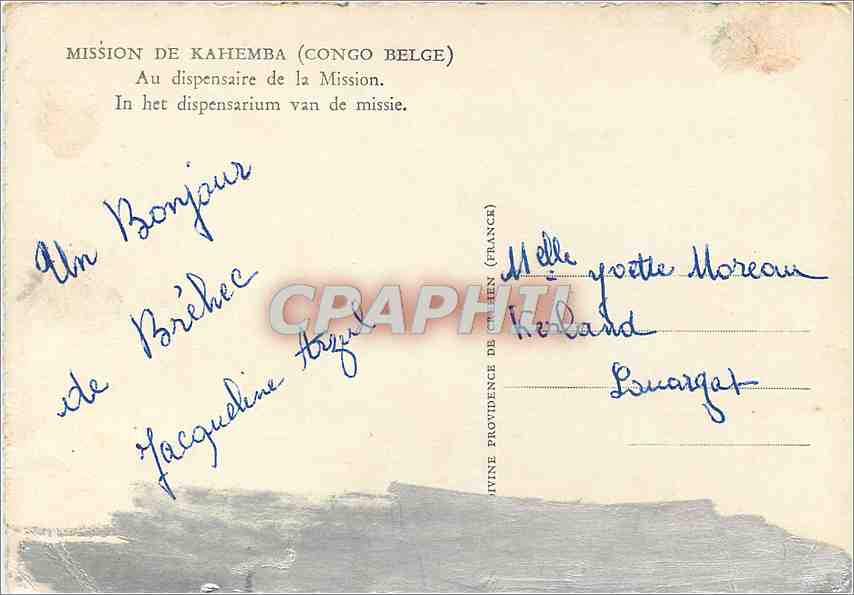 MISSION DE KAHEMBA (CONGO BELGE)
Au dispensaire de la Mission.
In het dispensarium van de missie.
Un Bonjour
de Bréhec
Jacqueline Arzul
DIVINE PROVIDENCE DE CREHEN (FRANCE)
Melle Yvette Moreau
Kerland
Louargat
CPAPHIL